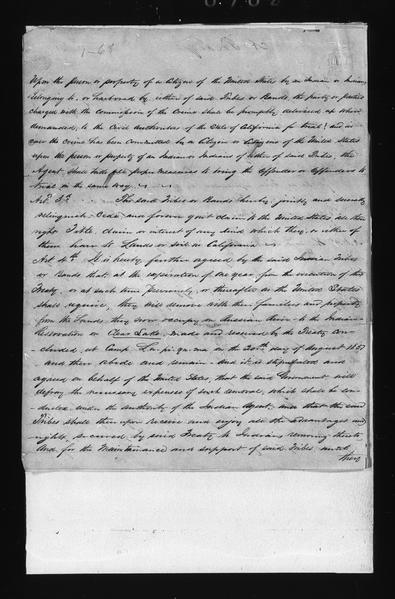 Upon the person or property of a Citizen of the United States by an Indian or Indians
belonging to, or harbored by either of said Tribes or Bands, the party or parties
charged with the commission of the Crime shall be promptly delivered up when
demanded, to the Civil Authorities of the State of California for trial; and in
case the Crime has been committed by a Citizen or Citizens of the United States
upon the person or property of an Indian or Indians of either of said Tribes, the
Agent shall take all proper measures to bring the Offender or Offenders to
trial in the same way.
Art. 3d. The said Tribes or Bands hereby jointly and severally
relinquish Cede and forever quit claim to the United States all their
right Title, claim or interest of any kind which they or either of
them have to Lands or soil in California
Art 4th It is hereby further agreed by the said Indian Tribes
or Bands that at the expiration of one year from the execution of this
Treaty, or at such time previously or thereafter as the United States
shall require, they will remove with their families and property
from the Lands they now occupy on Russian river to the Indian
Reservation on Clear Lake made and reserved by the Treaty con-
-cluded, at Camp Lu-pi-yu-ma on the 20th day of August 1851
and there abide and remain. And it is stipulated and
agreed on behalf of the United States, that the said Government will
defray the necessary expenses of such removal, which shall be con-
ducted under the authority of the Indian Agent, and that the said
Tribes shall thereupon receive and enjoy all the advantages and
rights, secured by said Treaty to Indians removing thereto
And for the Maintainance and support of said Tribes until
they